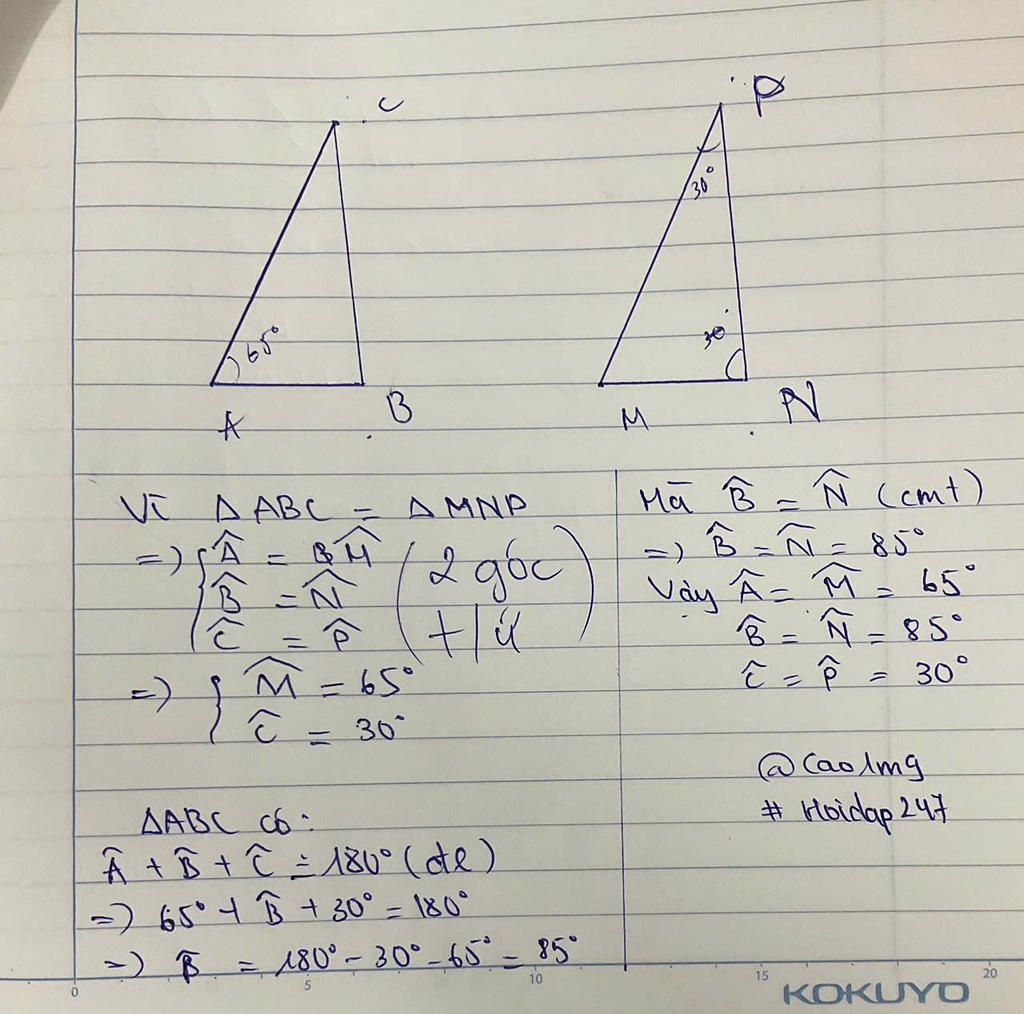 C
P
30°
65°
30°
A
B
M
N
Vì ΔABC = ΔMNP
=> { Â = M̂
B̂ = N̂
Ĉ = P̂
(2 góc
t/ứ)
=> { M̂ = 65°
Ĉ = 30°
ΔABC có:
Â + B̂ + Ĉ = 180° (đl)
=> 65° + B̂ + 30° = 180°
=> B̂ = 180° - 30° - 65° = 85°
Mà B̂ = N̂ (cmt)
=> B̂ = N̂ = 85°
Vậy Â = M̂ = 65°
B̂ = N̂ = 85°
Ĉ = P̂ = 30°
@cao1mg
# Hoidap247
0 5 10 15 20
KOKUYO